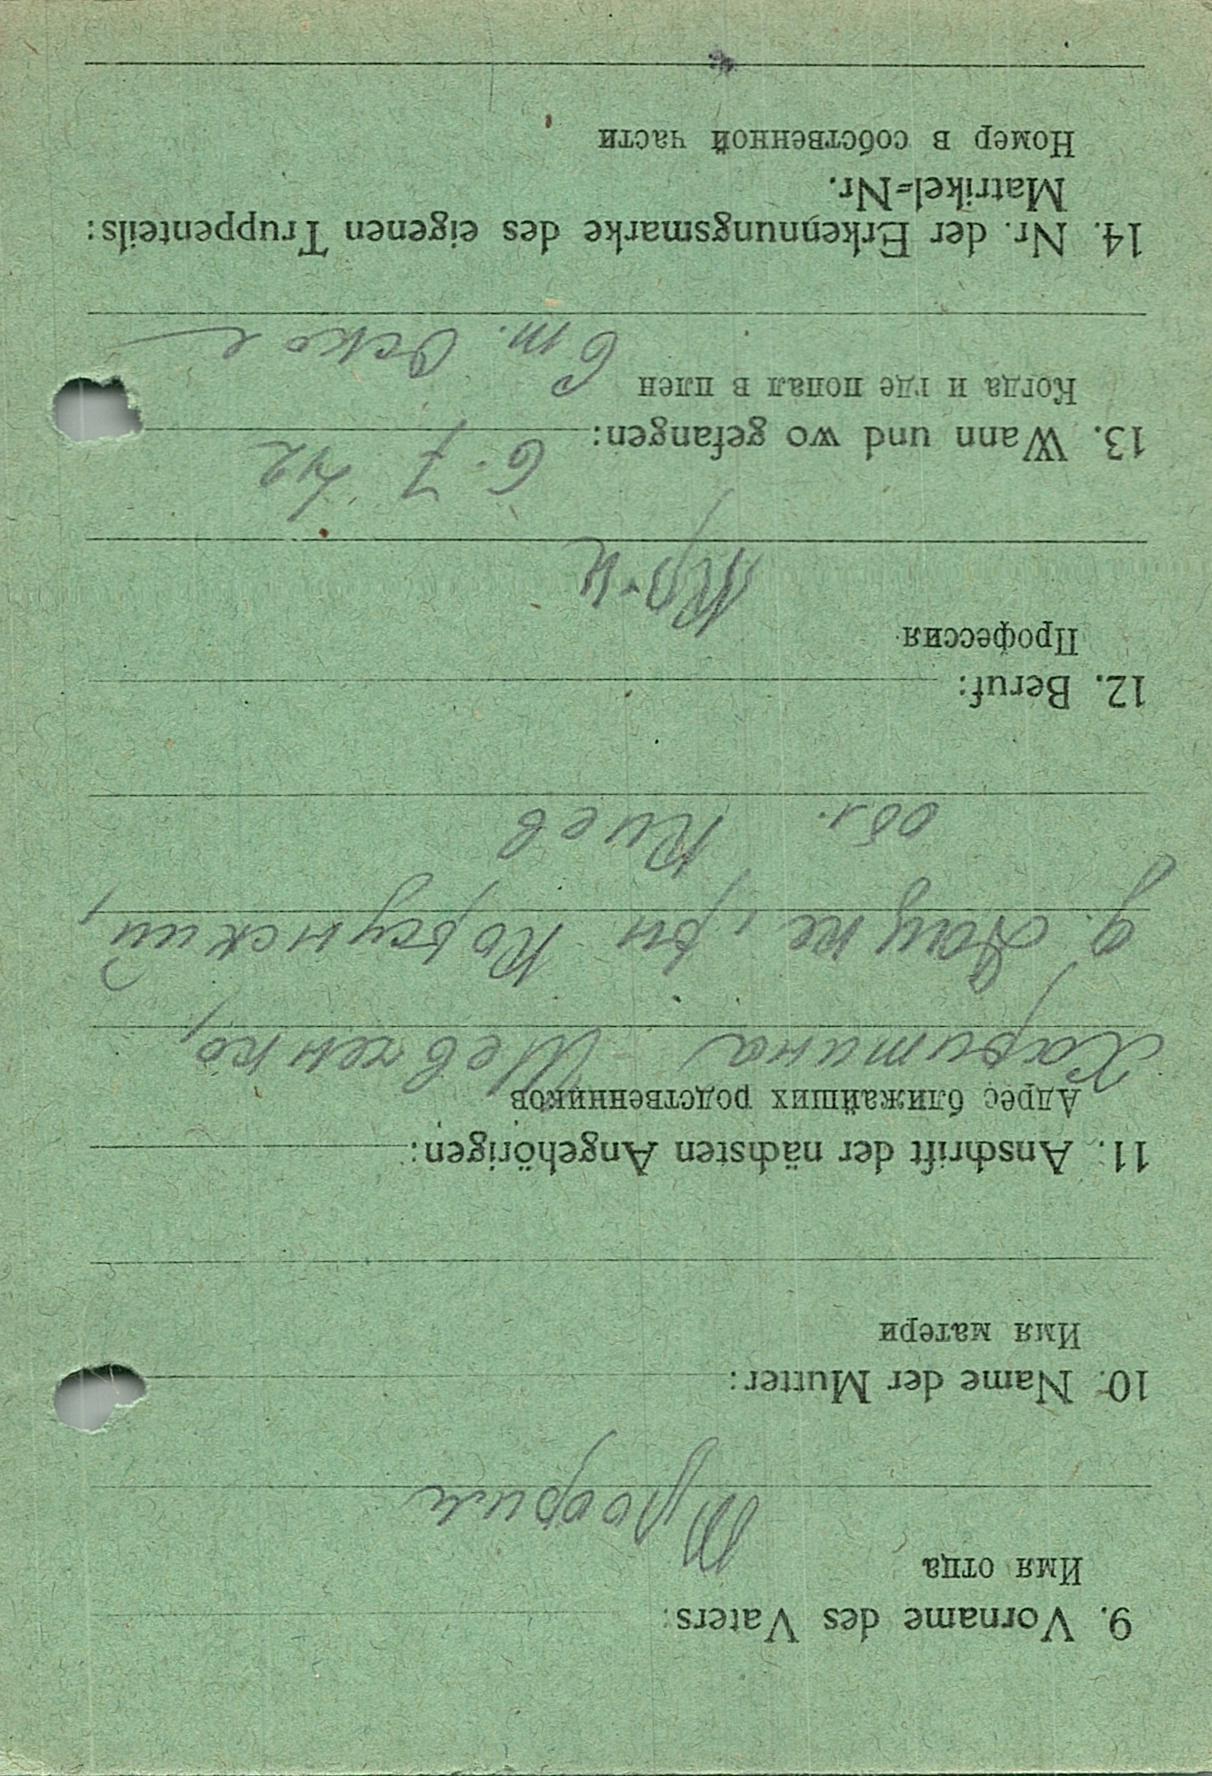 9. Vorname des Vaters:
Имя отца
10. Name der Mutter:
Имя матери
11. Anschrift der nächsten Angehörigen:
Адрес ближайших родственников
Харитина Шевченко,
д. рн Корсунский,
обл. Киев
12. Beruf:
Профессия
Кр-н
13. Wann und wo gefangen:
6.7 42
Когда и где попал в плен
Ст. Оскол
14. Nr. der Erkennungsmarke des eigenen Truppenteils:
Matrikel-Nr.
Номер в собственной части